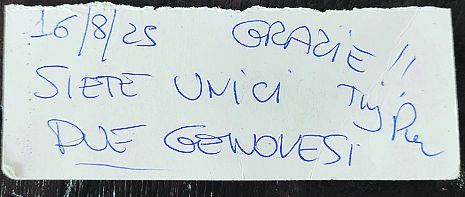 16/8/25 GRAZIE!!
SIETE UNICI
DUE GENOVESI